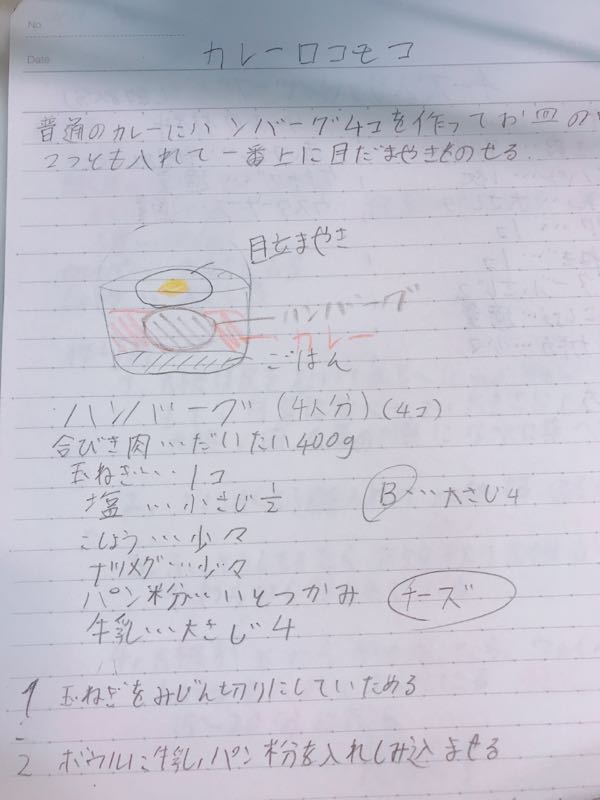 No.
Date
カレーロコモコ
普通のカレーにハンバーグ4コを作ってお皿の
2つとも入れて一番上に目だまやきものせる
目玉まやき
ハンバーグ
カレー
ごはん
ハンバーグ (4人分)(4コ)
合びき肉…だいたい400g
玉ねぎ…1コ
塩…小さじ1/2
B…大さじ4
こしょう…少々
ナツメグ…少々
パン粉…いとつかみ
チーズ
牛乳…大さじ4
1 玉ねぎをみじん切りにしていためる
2 ボウルに牛乳、パン粉を入れしみ込ませる